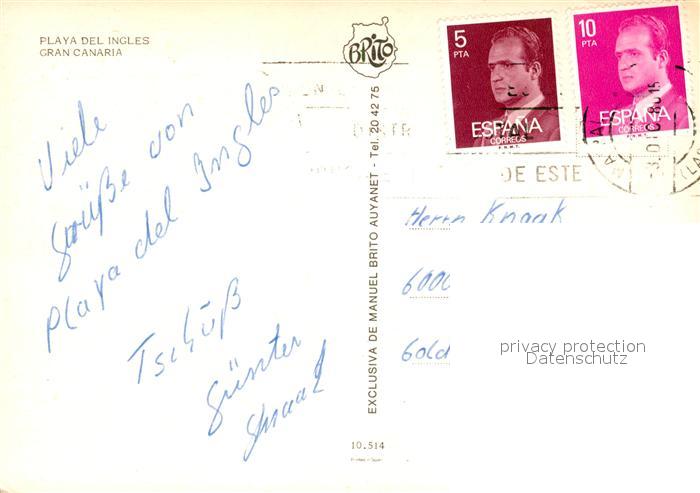 PLAYA DEL INGLES
GRAN CANARIA
BRITO
5
PTA
ESPAÑA
CORREOS
10
PTA
ESPAÑA
CORREOS
DE ESTE
Viele
Grüße von
Playa del Ingles
Tschüß
Günter
EXCLUSIVA DE MANUEL BRITO AUYANET - Tel. 20 42 75
Herrn Knaak
6000
Gold
privacy protection
Datenschutz
10.514